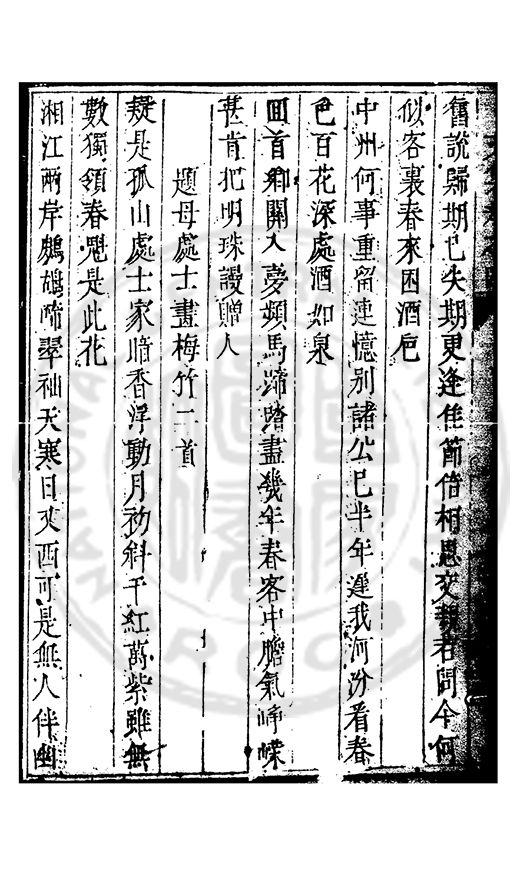 舊說歸期已失期更逢佳節倍相思交親若問今何
似客裏春來困酒巵
中州何事重留連憶別諸公已半年遲我河汾看春
色百花深處酒如泉
回首鄉關入夢頻馬蹄踏盡幾年春客中膽氣崢嶸
甚肯把明珠謾贈人
題母處士畫梅竹二首
疑是孤山處士家暗香浮動月初斜千紅萬紫雖無
數獨領春魁是此花
湘江兩岸鷓鴣啼翠袖天寒日又西可是無人伴幽